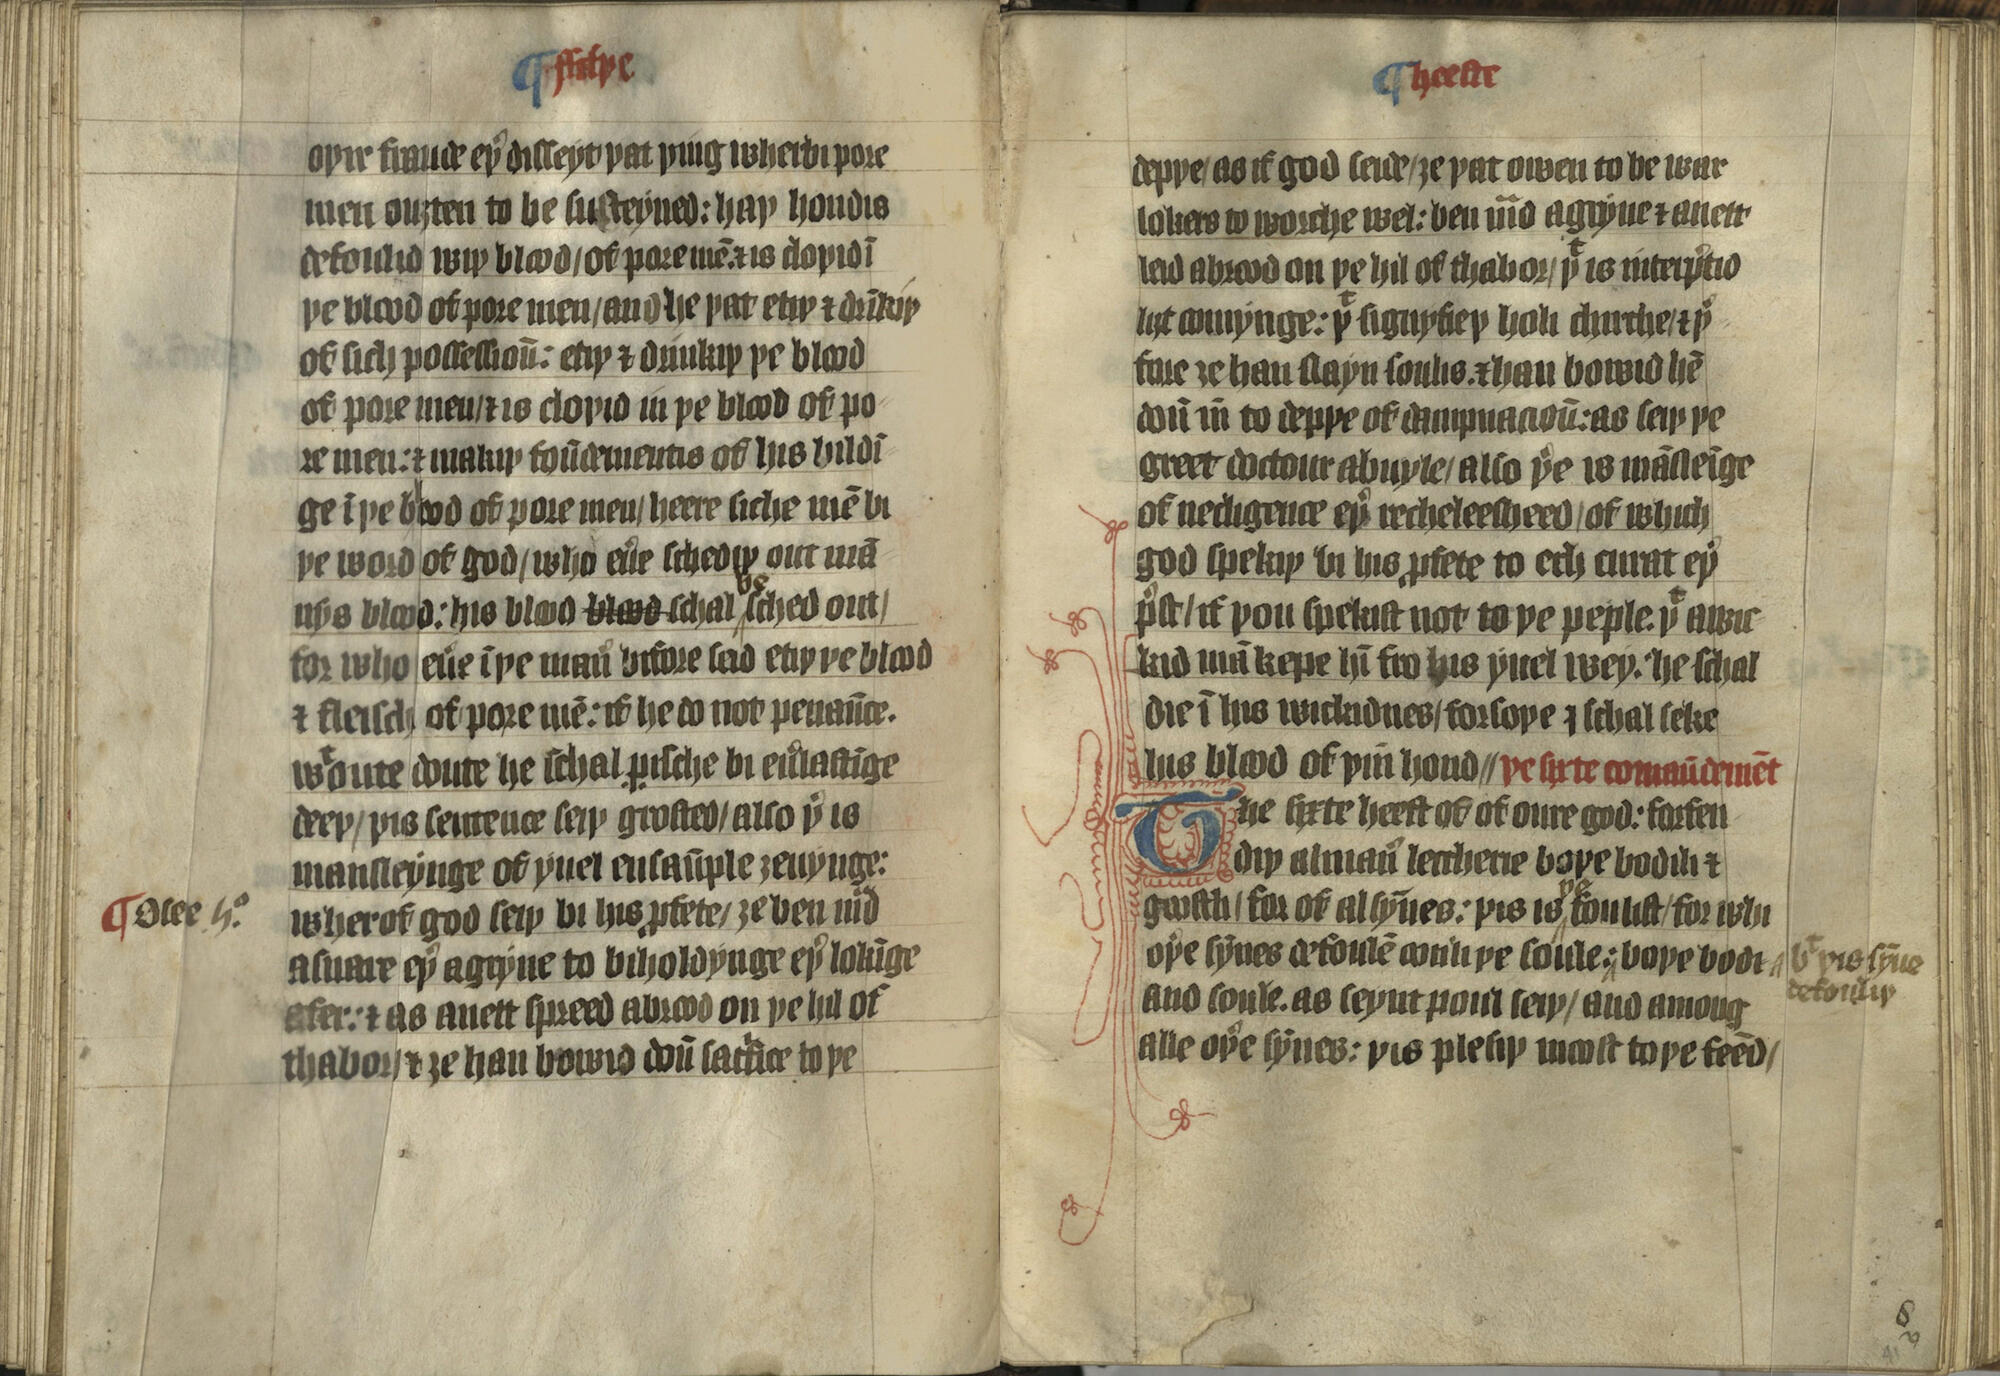 ¶ fifþe
oþir fraude eþ͛ disseyt þat þing wherbi pore
men ouȝten to be susteyned: haþ hondis
defoulid wiþ blood/ of pore mē. ⁊ is cloþid ī
þe blood of pore men/ and he þat etiþ ⁊ drīkiþ
of sich possessioū: etiþ ⁊ drinkiþ þe blood
of pore men/ ⁊ is cloþid in þe blood of po
re men: ⁊ makiþ foūdementis of his bildī
ge ī þe blood of pore men/ heere siche mē bi
þe word of god/ who eu͛e schediþ out mā
nys blood: his blood blood schal be sched out/
for who eu͛e ī þe man͛ bifore seid etiþ þe blood
⁊ fleisch of pore mē: if he do not penaūce.
wᵗoute doute he schal ꝑische bi eu͛lastīge
deeþ/ þis sentence seiþ grosted/ also þ͛ is
mansleyinge of yuel ensaūple ȝeuynge:
¶ Osee 5.º
wherof god seiþ bi his ꝓfete/ ȝe ben mīd
a snare eþ͛ a gryne to biholdynge eþ͛ lokīge
afer: ⁊ as a nett spreed abrood on þe hil of
thabor/ ⁊ ȝe han bowid doū sac͛fice to þe
¶ heeste
deppe/ as if god seide/ ȝe þat owen to be war
lokers to worche wel: ben mīd a gryne ⁊ a nett
leid abrood on þe hil of thabor/ þᵗ is interp͛tid
liȝt comynge: þᵗ signyfieþ holi chirche/ ⁊ þ͛
fore ȝe han slayn soulis. ⁊ han bowid hē
doū in to deppe of dampnacioū: as seiþ þe
greet doctour abuyle/ also þ͛e is māsleīge
of necligence eþ͛ recheleesheed/ of which
god spekiþ bi his ꝓfete to ech curat eþ͛
p͛st/ if þou spekist not to þe peple. þᵗ a wic
kid mā kepe hī fro his yuel wey. he schal
die ī his wickidnes/ forsoþe I schal seke
his blood of þin hond// þe sixte comaūdemēt
The sixte heest of of oure god: forfen
diþ al man͛ leccherie boþe bodili ⁊
goostli/ for of al syn̄es: þis is þe foulist/ for whi
oþ͛e syn̄es defoulē oonli þe soule: bᵗ þis syn̄e
defouliþ boþe bodi
and soule. as seynt poul seiþ/ and among
alle oþ͛e syn̄es: þis plesiþ moost to þe feēd/
8